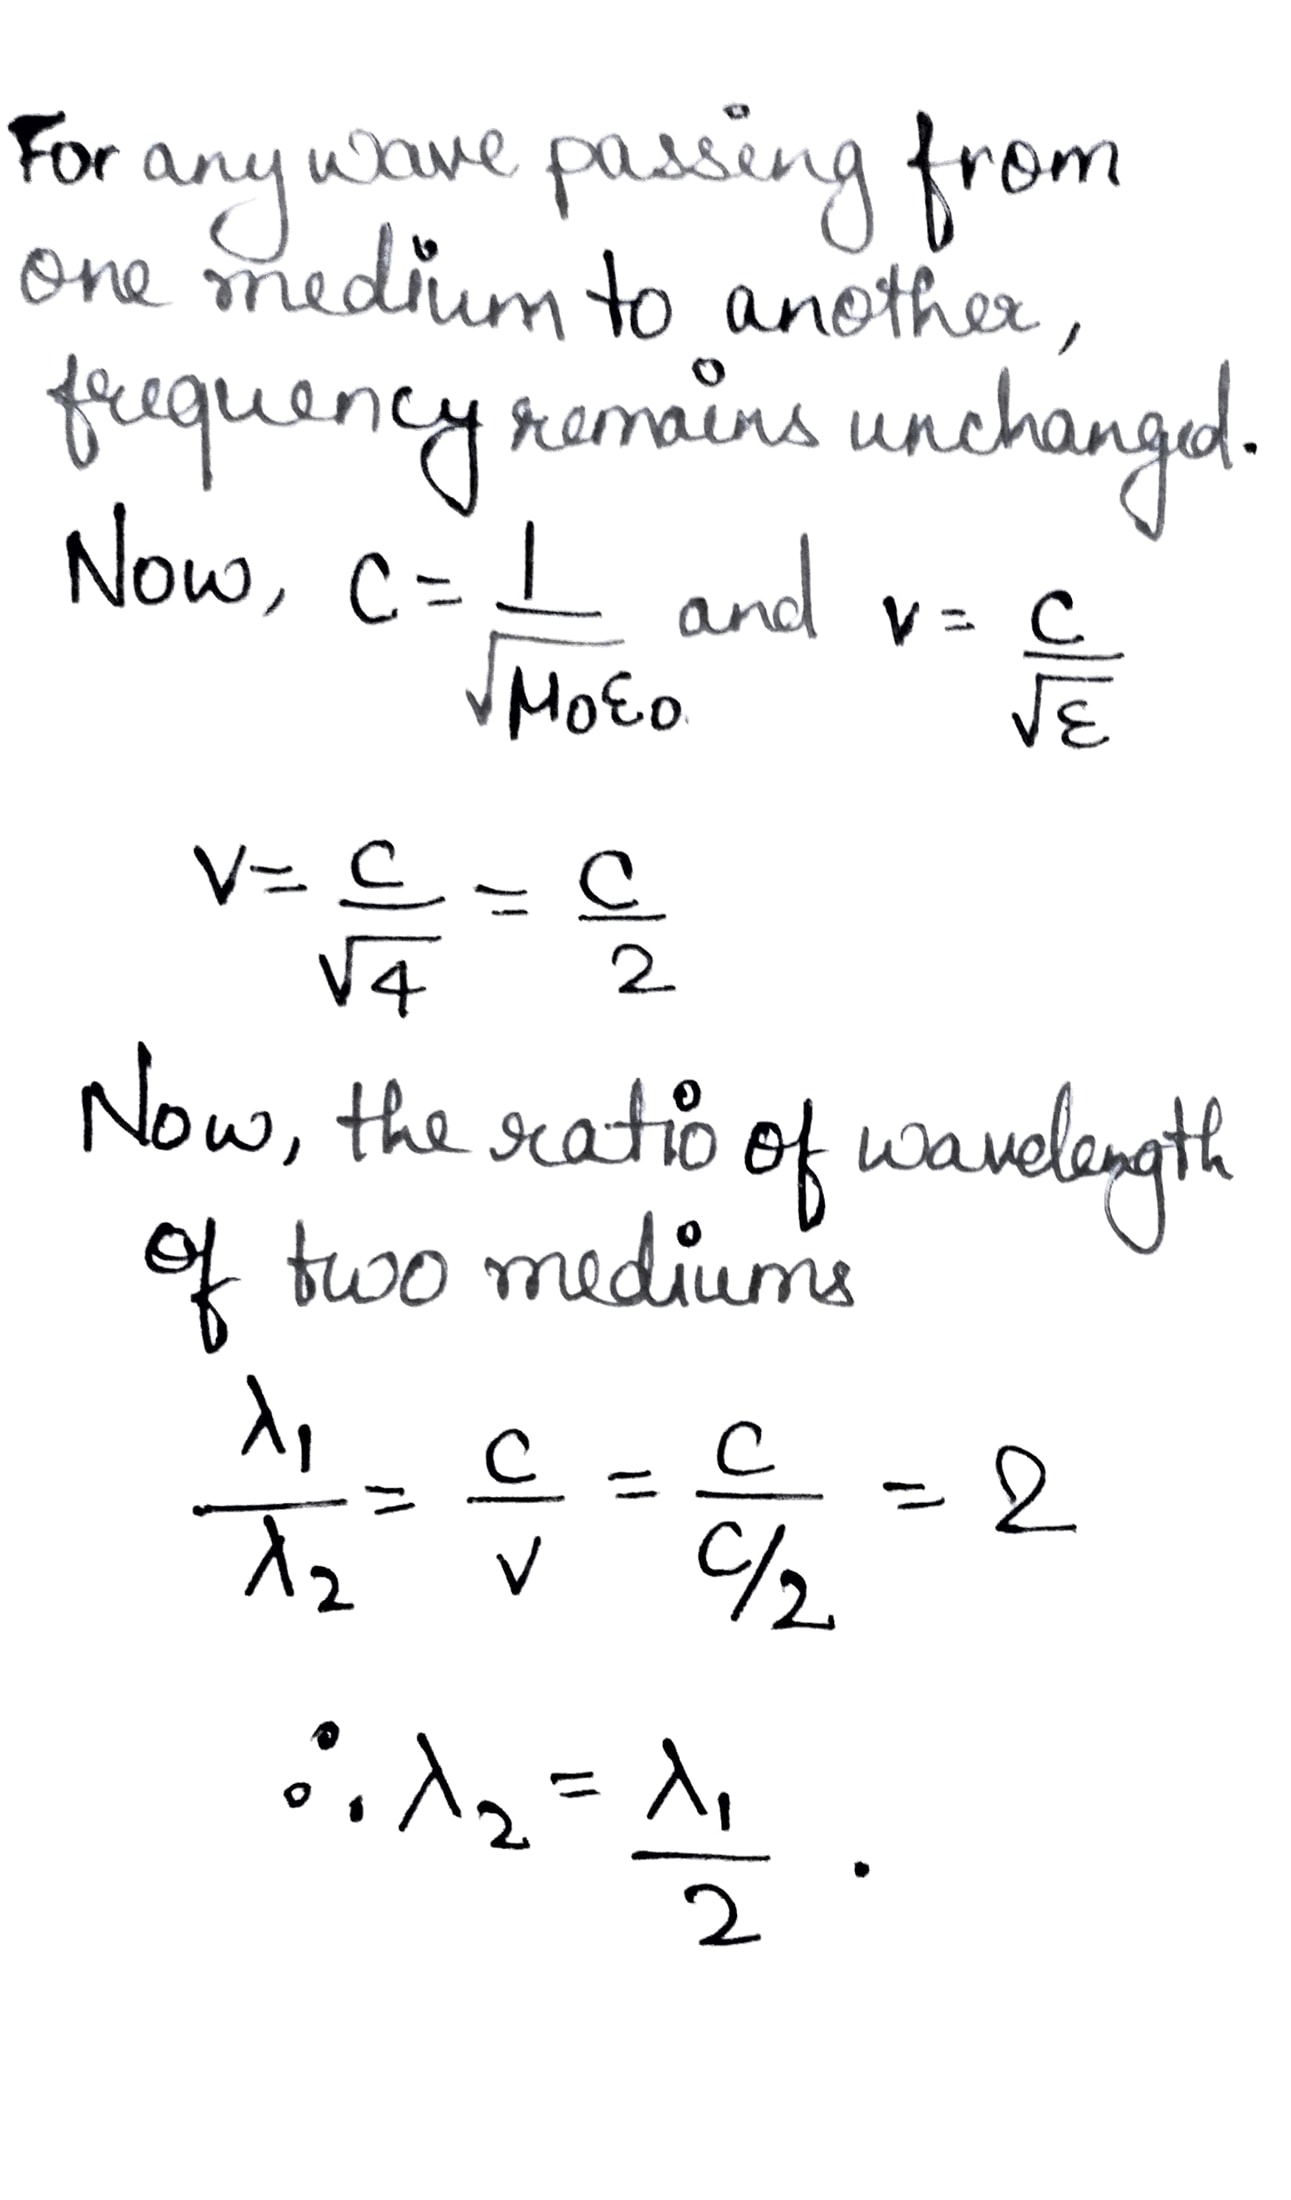 For any wave passing from
one medium to another,
frequency remains unchanged.
Now, C = 1/√μ0ε0 and v = C/√ε
V = C/√4 = C/2
Now, the ratio of wavelength
of two mediums
λ1/λ2 = C/v = C/C/2 = 2
∴ λ2 = λ1/2 .